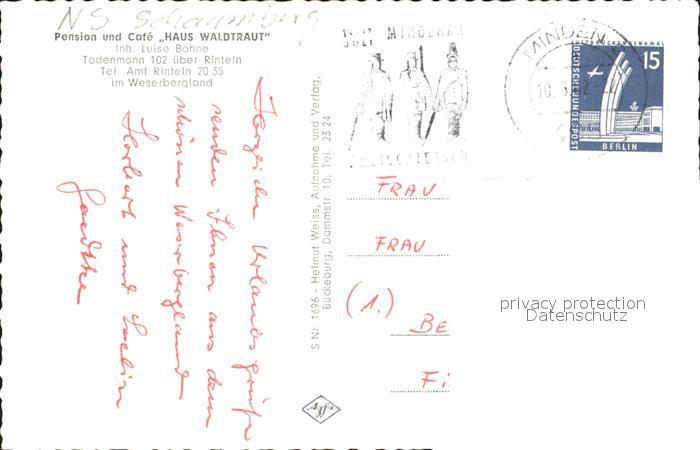 NS Schaumburg
Pension und Café „HAUS WALDTRAUT"
Inh. Luise Böhne
Todenmann 102 über Rinteln
Tel. Amt Rinteln 20 35
im Weserbergland
Herzliche Urlaubsgrüße
senden Ihnen aus dem
schönen Weserbergland
Herbert und
S Nr. 1696 - Helmut Weiss, Aufnahme und Verlag,
Bückeburg, Dammstr. 10, Tel. 23 24
Agfa
MINDENER
FREISCHIESSEN
MINDEN
15
DEUTSCHE BUNDESPOST
BERLIN
FRAU
FRAU
(1.)
BE
Fi
privacy protection
Datenschutz